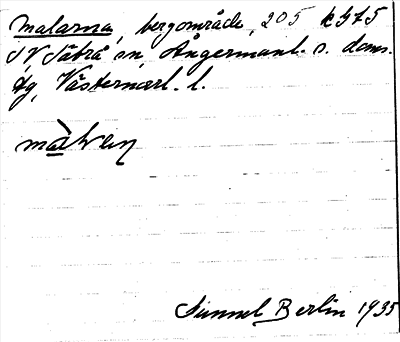 Malarna, bergområde, 205 k475
NV Säbrå sn, Ångermanl. s. doms.
tg, Västernorrl. l.
Gunnel Berlin 1935